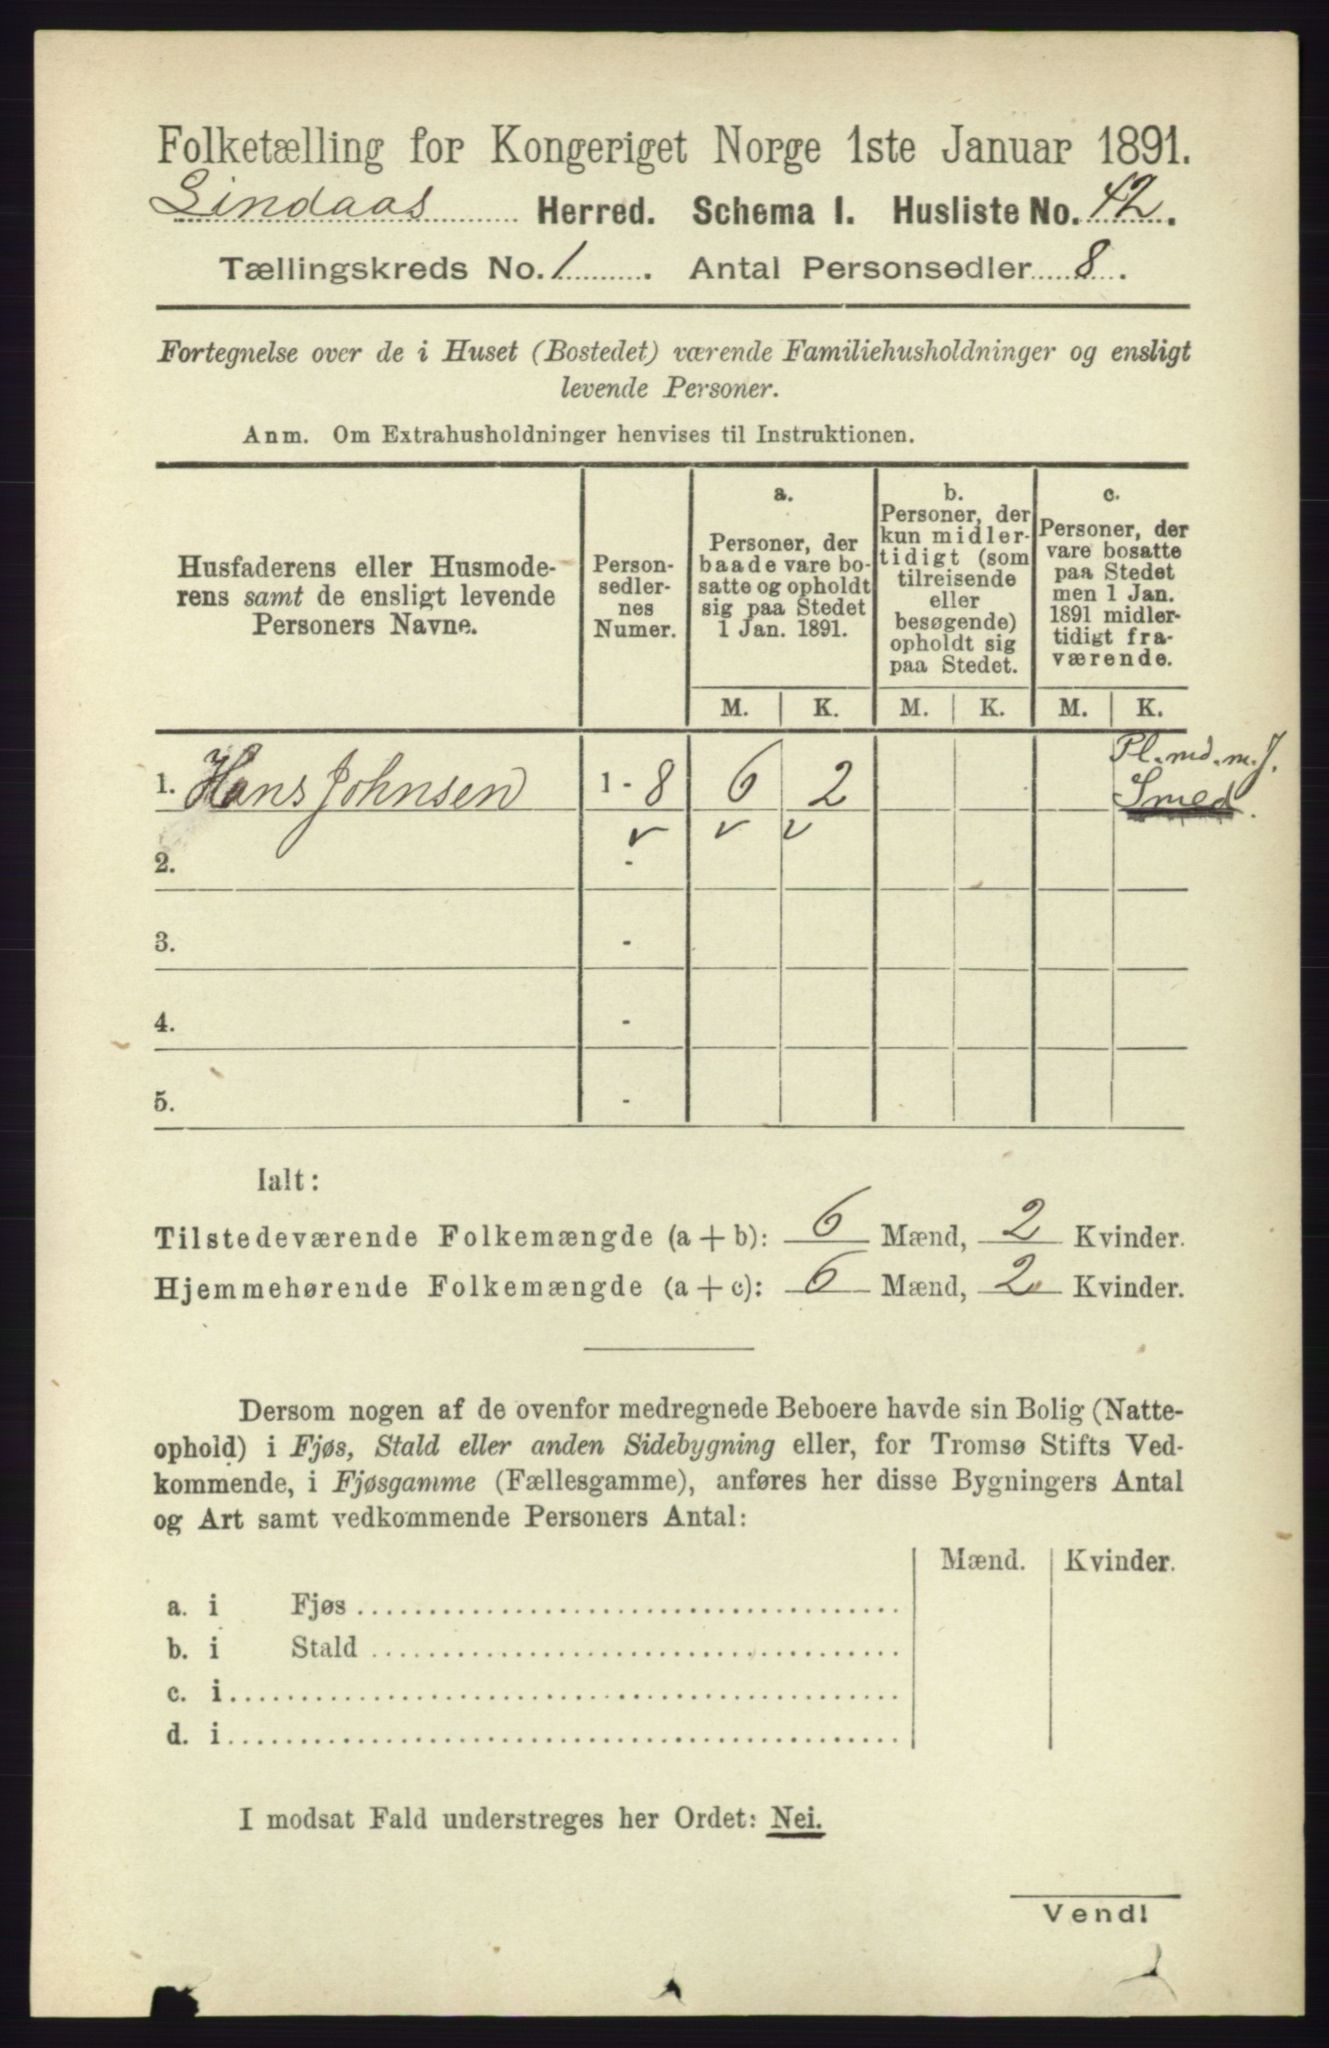 Folketælling for Kongeriget Norge 1ste Januar 1891.
Lindaas Herred. Schema I. Husliste No. 42.
Tællingskreds No. 1. Antal Personsedler 8.
Fortegnelse over de i Huset (Bostedet) værende Familiehusholdninger og ensligt
levende Personer.
Anm. Om Extrahusholdninger henvises til Instruktionen.
Husfaderens eller Husmode-
rens samt de ensligt levende
Personers Navne.
Person-
sedler-
nes
Numer.
a.
Personer, der
baade vare bo-
satte og opholdt
sig paa Stedet
1 Jan. 1891.
b.
Personer, der
kun midler-
tidigt (som
tilreisende
eller
besøgende)
opholdt sig
paa Stedet.
c.
Personer, der
vare bosatte
paa Stedet
men 1 Jan.
1891 midler-
tidigt fra-
værende.
M. K. M. K. M. K.
Pl. md. m. J.
1. Hans Johnsen 1 - 8 6 2 Smed.
2. -
3. -
4. -
5. -
Ialt:
Tilstedeværende Folkemængde (a + b): 6 Mænd, 2 Kvinder.
Hjemmehørende Folkemængde (a + c): 6 Mænd, 2 Kvinder.
Dersom nogen af de ovenfor medregnede Beboere havde sin Bolig (Natte-
ophold) i Fjøs, Stald eller anden Sidebygning eller, for Tromsø Stifts Ved-
kommende, i Fjøsgamme (Fællesgamme), anføres her disse Bygningers Antal
og Art samt vedkommende Personers Antal:
Mænd. Kvinder.
a. i Fjøs
b. i Stald
c. i
d. i
I modsat Fald understreges her Ordet: Nei.
Vend!